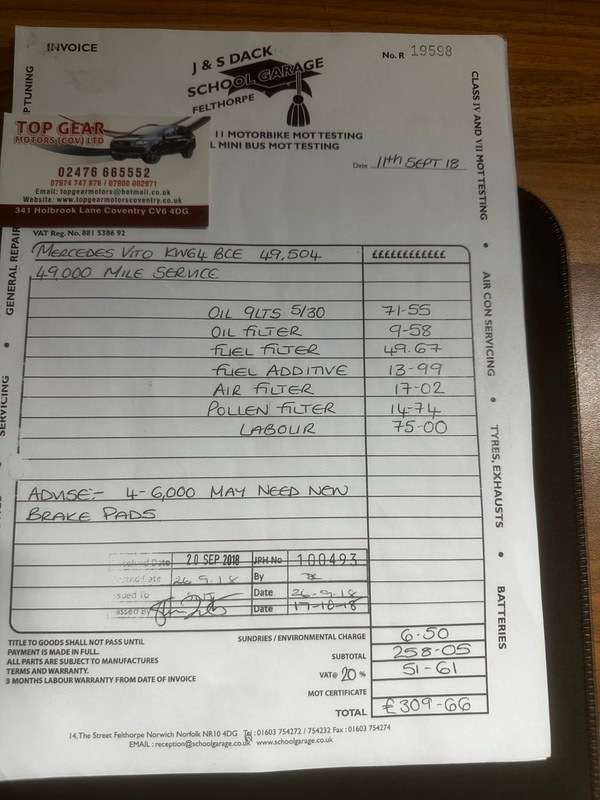 INVOICE
J & S DACK
SCHOOL GARAGE
FELTHORPE
No. R 19598
TUNING
11 MOTORBIKE MOT TESTING
L MINI BUS MOT TESTING
Date 11th SEPT 18
TOP GEAR
MOTORS (COV) LTD
02476 665552
07974 747 876 / 07800 602971
Email: topgearmotors@hotmail.co.uk
Website: www.topgearmotorscoventry.co.uk
341 Holbrook Lane Coventry CV6 4DG
VAT Reg. No. 881 5386 92
MERCEDES VITO KW64 BCE 49,504 ££££££££££££
49,000 MILE SERVICE
OIL 9LTS 5/30 71-55
OIL FILTER 9-58
FUEL FILTER 49.67
FUEL ADDITIVE 13-99
AIR FILTER 17-02
POLLEN FILTER 14-74
LABOUR 75-00
ADVISE:- 4-6,000 MAY NEED NEW
BRAKE PADS
Date 20 SEP 2018 JPH No 100493
26.9.18 By
Date 26.9.18
Date 17-10-18
SUNDRIES / ENVIRONMENTAL CHARGE 6-50
SUBTOTAL 258-05
VAT@ 20 % 51-61
MOT CERTIFICATE
TOTAL £309-66
TITLE TO GOODS SHALL NOT PASS UNTIL
PAYMENT IS MADE IN FULL.
ALL PARTS ARE SUBJECT TO MANUFACTURES
TERMS AND WARRANTY.
3 MONTHS LABOUR WARRANTY FROM DATE OF INVOICE
14, The Street Felthorpe Norwich Norfolk NR10 4DG Tel : 01603 754272 / 754232 Fax : 01603 754274
EMAIL : reception@schoolgarage.co.uk www.schoolgarage.co.uk
SERVICING • GENERAL REPAIR
CLASS IV AND VII MOT TESTING • AIR CON SERVICING • TYRES, EXHAUSTS • BATTERIES